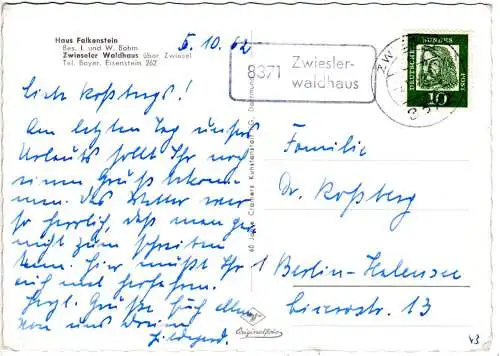 Haus Falkenstein
Bes. I. und W. Bohm
Zwieseler Waldhaus über Zwiesel
Tel. Bayer. Eisenstein 262
5.10.62
Liebe Roßbergs!
Am letzten Tag unsres
Urlaubs sollt Ihr noch
einen Gruß bekom-
men. Das Wetter war
so herrlich, daß man gar
nicht zum Schreiben
kam. Hier müßt Ihr
auch mal herfahren.
Herzl. Grüße Euch allen
von uns Dreien
Hildegard.
8371 Zwiesler-
waldhaus
DEUTSCHE BUNDESPOST
10
Familie
Dr. Roßberg
1 Berlin-Halensee
13
60 Jahre Cramers Kunstanstalt KG, Dortmund
Originalfoto
43